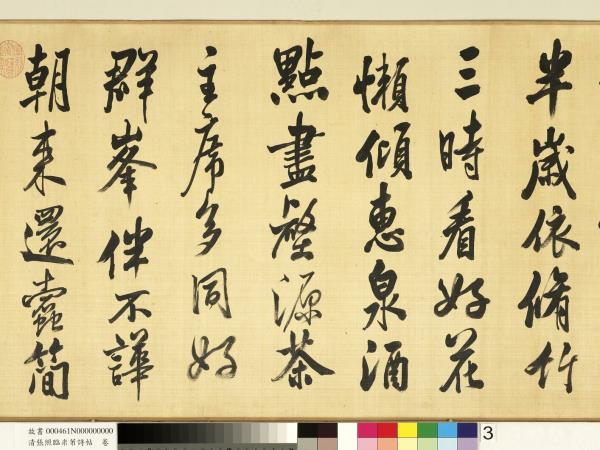 半歲依脩竹
三時看好花
懶傾惠泉酒
點盡壑源茶
主席多同好
群峯伴不譁
朝來還蠹簡
故書 000461N000000000
清張照臨米芾詩帖 卷
3